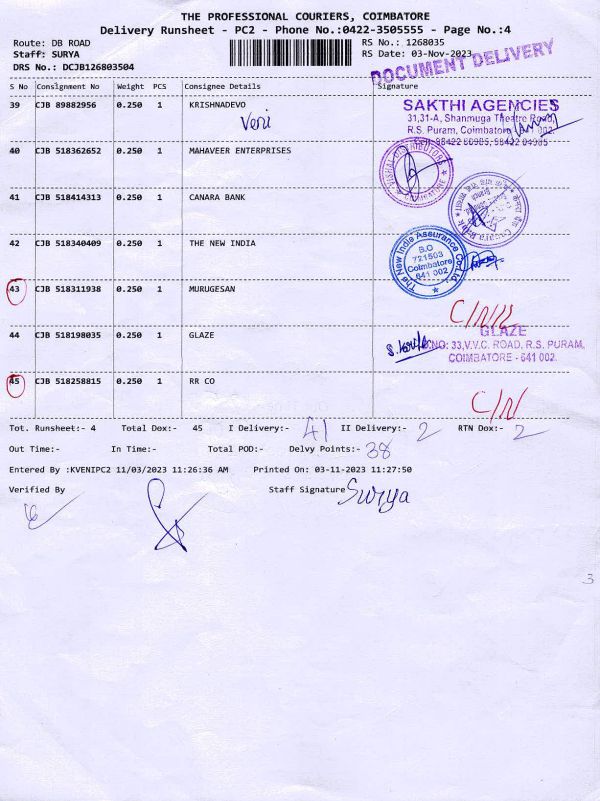 THE PROFESSIONAL COURIERS, COIMBATORE
Delivery Runsheet - PC2 - Phone No.:0422-3505555 - Page No.:4
Route: DB ROAD
RS No.: 1268035
Staff: SURYA
RS Date: 03-Nov-2023
DRS No.: DCJB126803504
DOCUMENT DELIVERY
S No Consignment No Weight PCS Consignee Details Signature
39 CJB 89882956 0.250 1 KRISHNADEVO
Veni
SAKTHI AGENCIES
31,31-A, Shanmuga Theatre Road,
R.S. Puram, Coimbatore 002.
40 CJB 518362652 0.250 1 MAHAVEER ENTERPRISES
DISTRIBUTORS
COIMBATORE
41 CJB 518414313 0.250 1 CANARA BANK
Canara Bank
42 CJB 518340409 0.250 1 THE NEW INDIA
The New India Assurance Co. Ltd.
B.O
721503
Coimbatore
641 002
43 CJB 518311938 0.250 1 MURUGESAN
44 CJB 518198035 0.250 1 GLAZE
GLAZE
NO: 33,V.V.C. ROAD, R.S. PURAM,
COIMBATORE - 641 002.
45 CJB 518258815 0.250 1 RR CO
C/N/
Tot. Runsheet:- 4 Total Dox:- 45 I Delivery:- 41 II Delivery:- 2 RTN Dox:- 2
Out Time:- In Time:- Total POD:- Delvy Points:- 38
Entered By :KVENIPC2 11/03/2023 11:26:36 AM Printed On: 03-11-2023 11:27:50
Verified By Staff Signature Surya
3